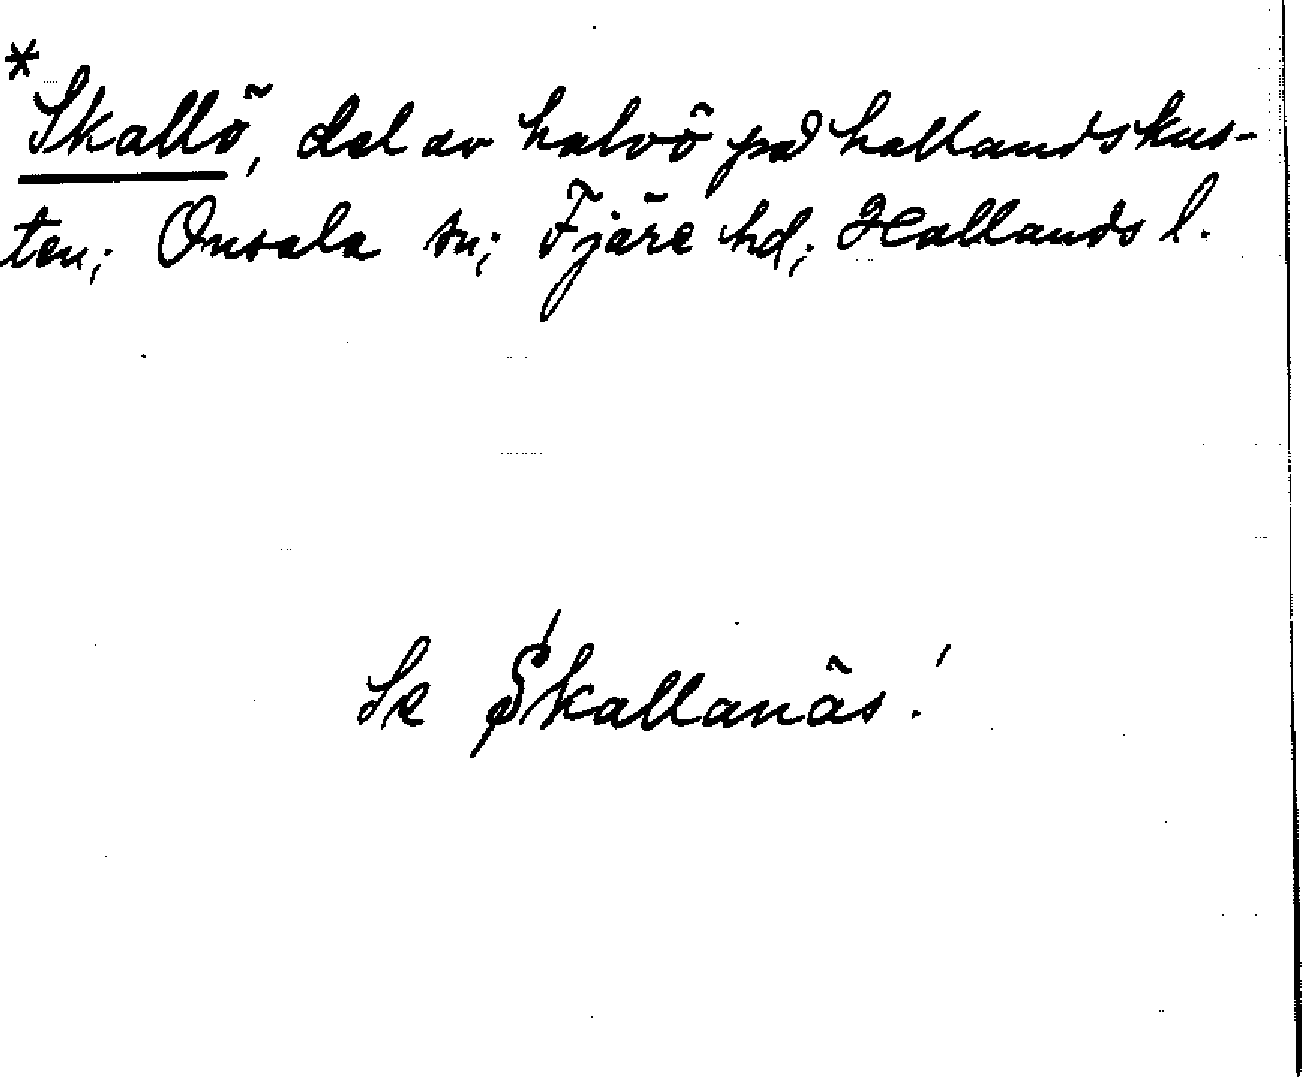 *Skallö, del av halvö på hallandskus-
ten; Onsala sn; Fjäre hd; Hallands l.
Se Skallanäs!